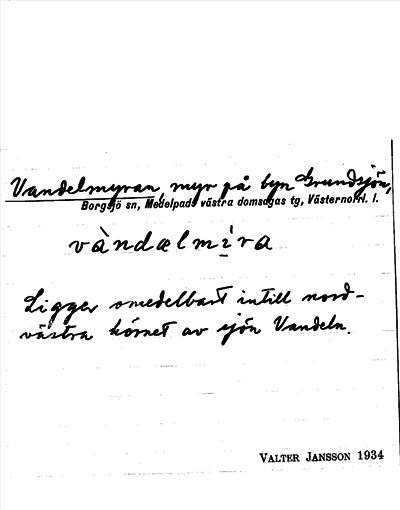 Vandelmyran, myr på byn Grundsjön,
Borgsjö sn, Medelpads västra domsagas tg, Västernorrl. l.
vàndælmı̣́ra
Ligger omedelbart intill nord-
västra hörnet av sjön Vandeln.
VALTER JANSSON 1934